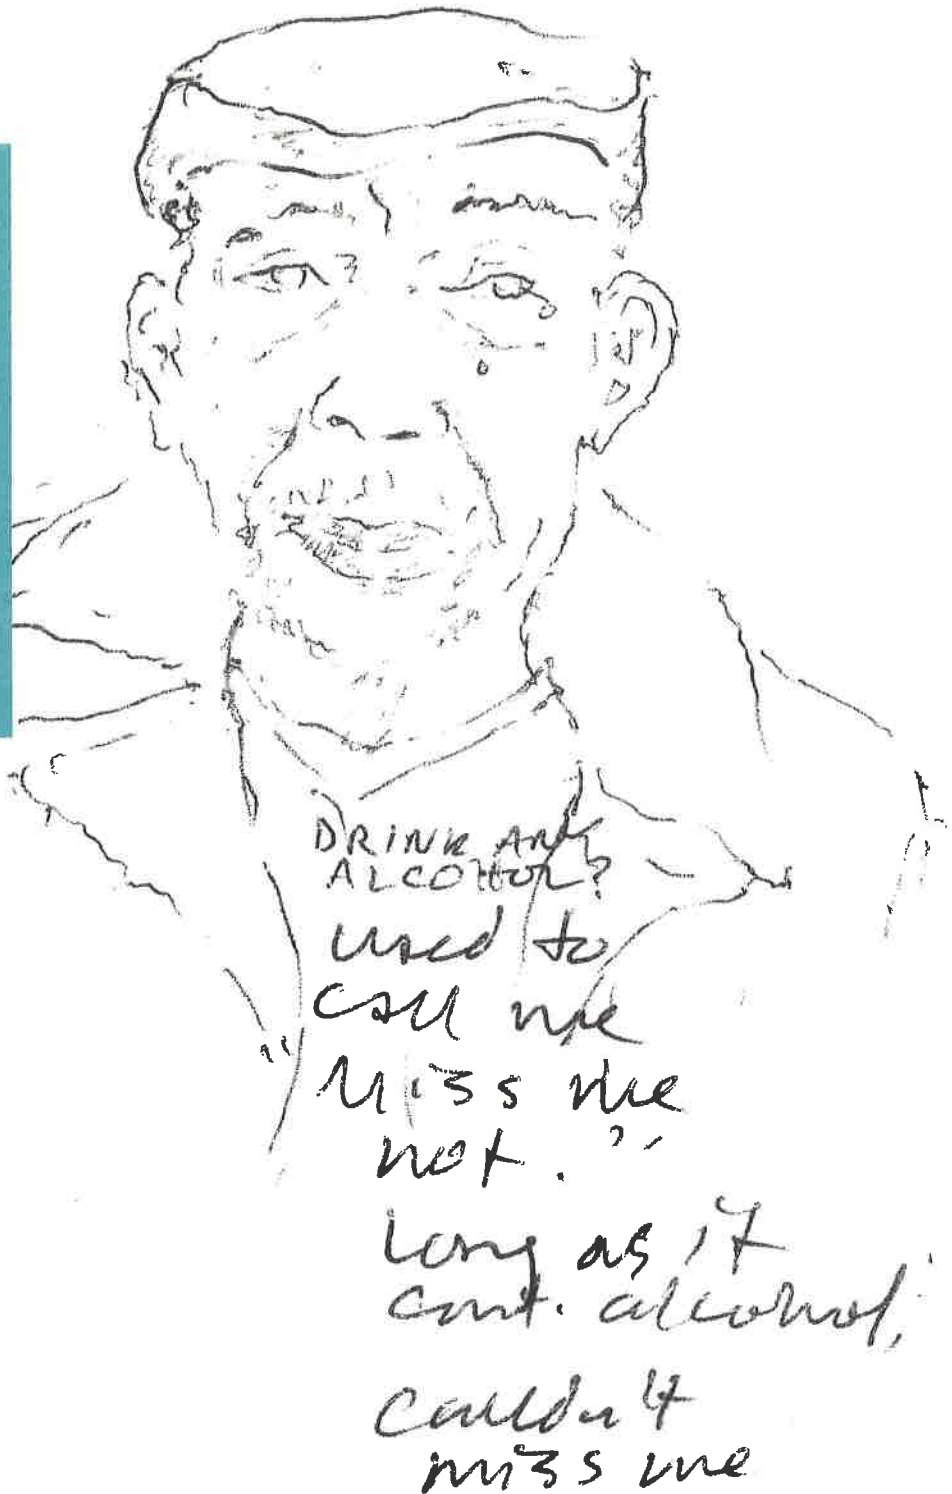 DRINK ANY
ALCOHOL?
used to
call me
"Miss me
not."
Long as it
cont. alcohol,
couldn't
miss me